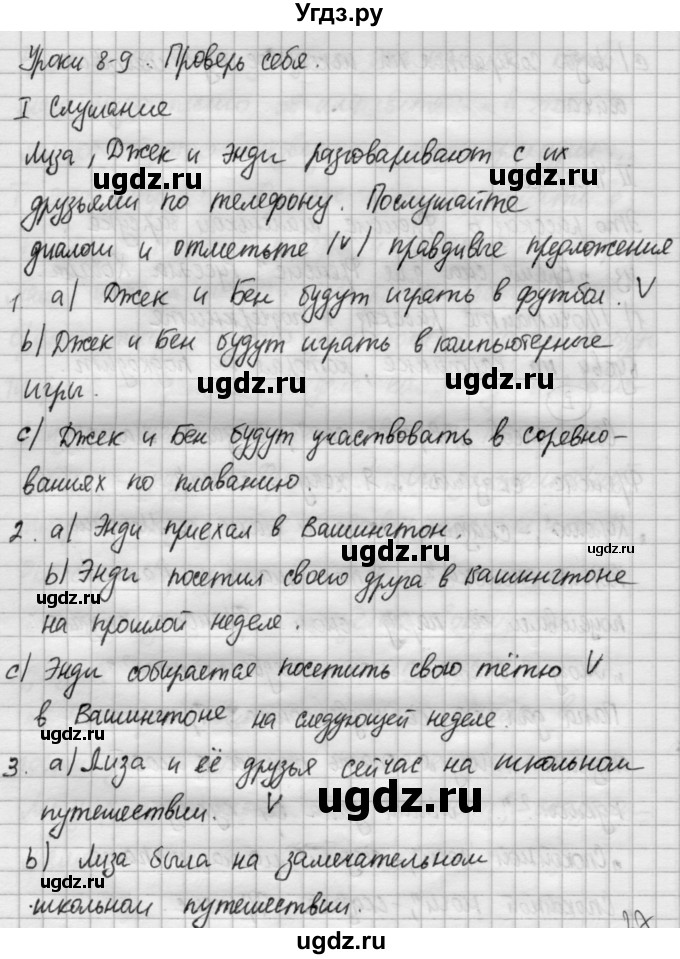 Угдз.ру
Уроки 8-9. Проверь себя.
I Слушание
Лиза, Джек и Энди разговаривают с их
ugdz.ru ugdz.ru
друзьями по телефону. Послушайте
диалоги и отметьте /v/ правдивые предложения
ugdz.ru
1 a) Джек и Бен будут играть в футбол. V
b) Джек и Бен будут играть в компьютерные
игры.
ugdz.ru ugdz.ru
c) Джек и Бен будут участвовать в соревно-
ваниях по плаванию.
2. a) Энди приехал в Вашингтон.
ugdz.ru ugdz.ru
b) Энди посетил своего друга в Вашингтоне
ugdz.ru
на прошлой неделе.
c) Энди собирается посетить свою тётю V
в Вашингтоне на следующей неделе.
ugdz.ru ugdz.ru
3. a) Лиза и её друзья сейчас на школьном
путешествии. V
ugdz.ru
b) Лиза была на замечательном
ugdz.ru
школьном путешествии.
27
ugdz.ru